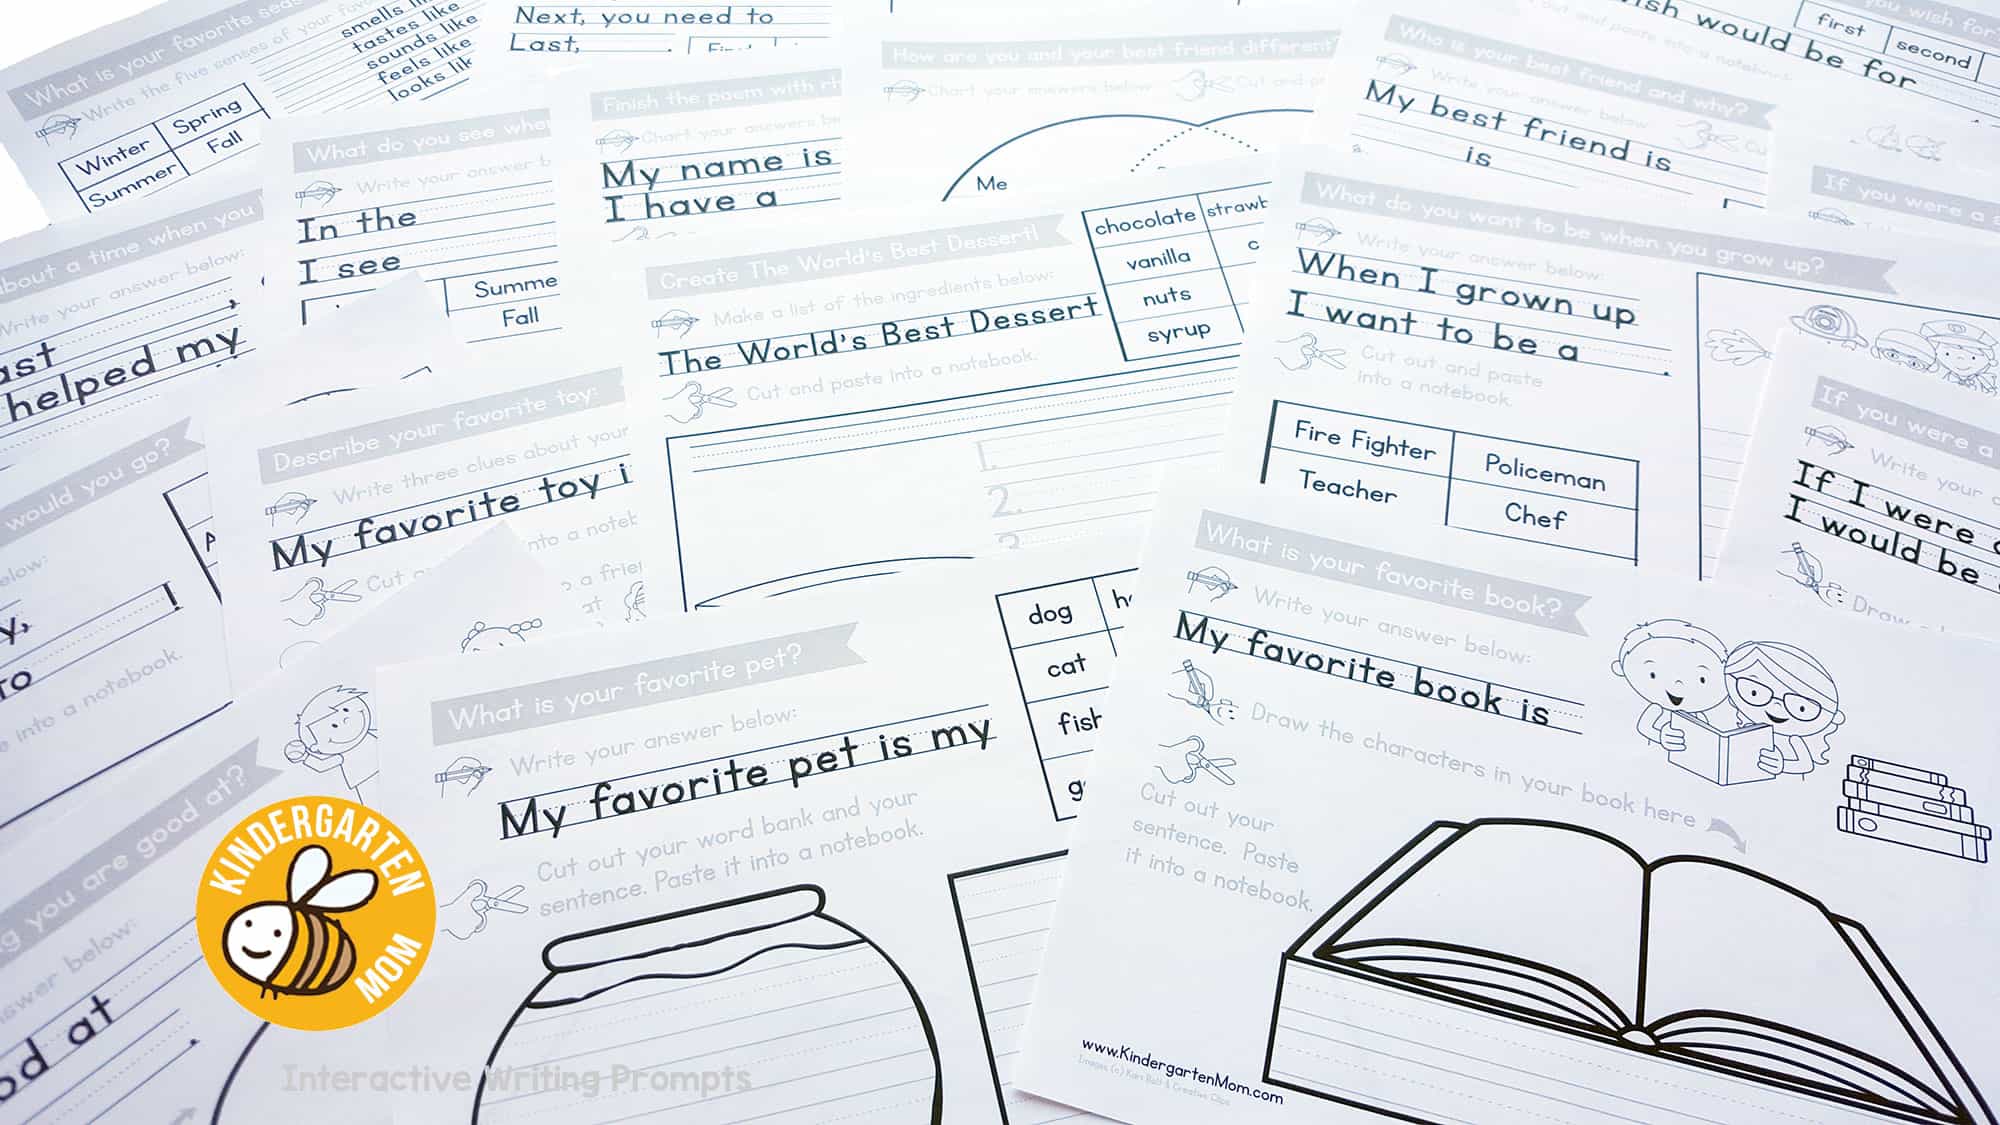 What is your favorite
Write the five senses of your
smells
tastes like
sounds like
feels like
looks
Winter
Spring
Summer
Fall
Next, you need to
Last,
How are you and your best friend different
Chart your answers below
Cut and
Me
Who is your best friend and why?
Write your answer below
My best friend is
is
you wish for
would be for
first
second
What do you see
Write your answer
In the
I see
Summe
Fall
Finish the poem with
Chart your answers
My name is
I have a
about a time when you
Write your answer below:
helped my
Create The World's Best Dessert!
Make a list of the ingredients below:
The World's Best Dessert
Cut and paste into a notebook.
chocolate
vanilla
nuts
syrup
1.
2.
3.
What do you want to be when you grow up?
Write your answer below:
When I grow up
I want to be a
.
Cut out and paste
into a notebook.
Fire Fighter
Policeman
Teacher
Chef
If you were a
If you were a
Write your
If I were
I would be
Draw
would you go?
below:
!
into a notebook.
Describe your favorite toy:
Write three clues about your
My favorite toy i
Cut
into a
What is your favorite pet?
Write your answer below:
My favorite pet is my
Cut out your word bank and your
sentence. Paste it into a notebook.
dog
cat
fish
What is your favorite book?
Write your answer below:
My favorite book is
Draw the characters in your book here
Cut out your
sentence. Paste
it into a notebook.
www.KindergartenMom.com
you are good at?
answer below:
at
.
KINDERGARTEN
MOM
Interactive Writing Prompts